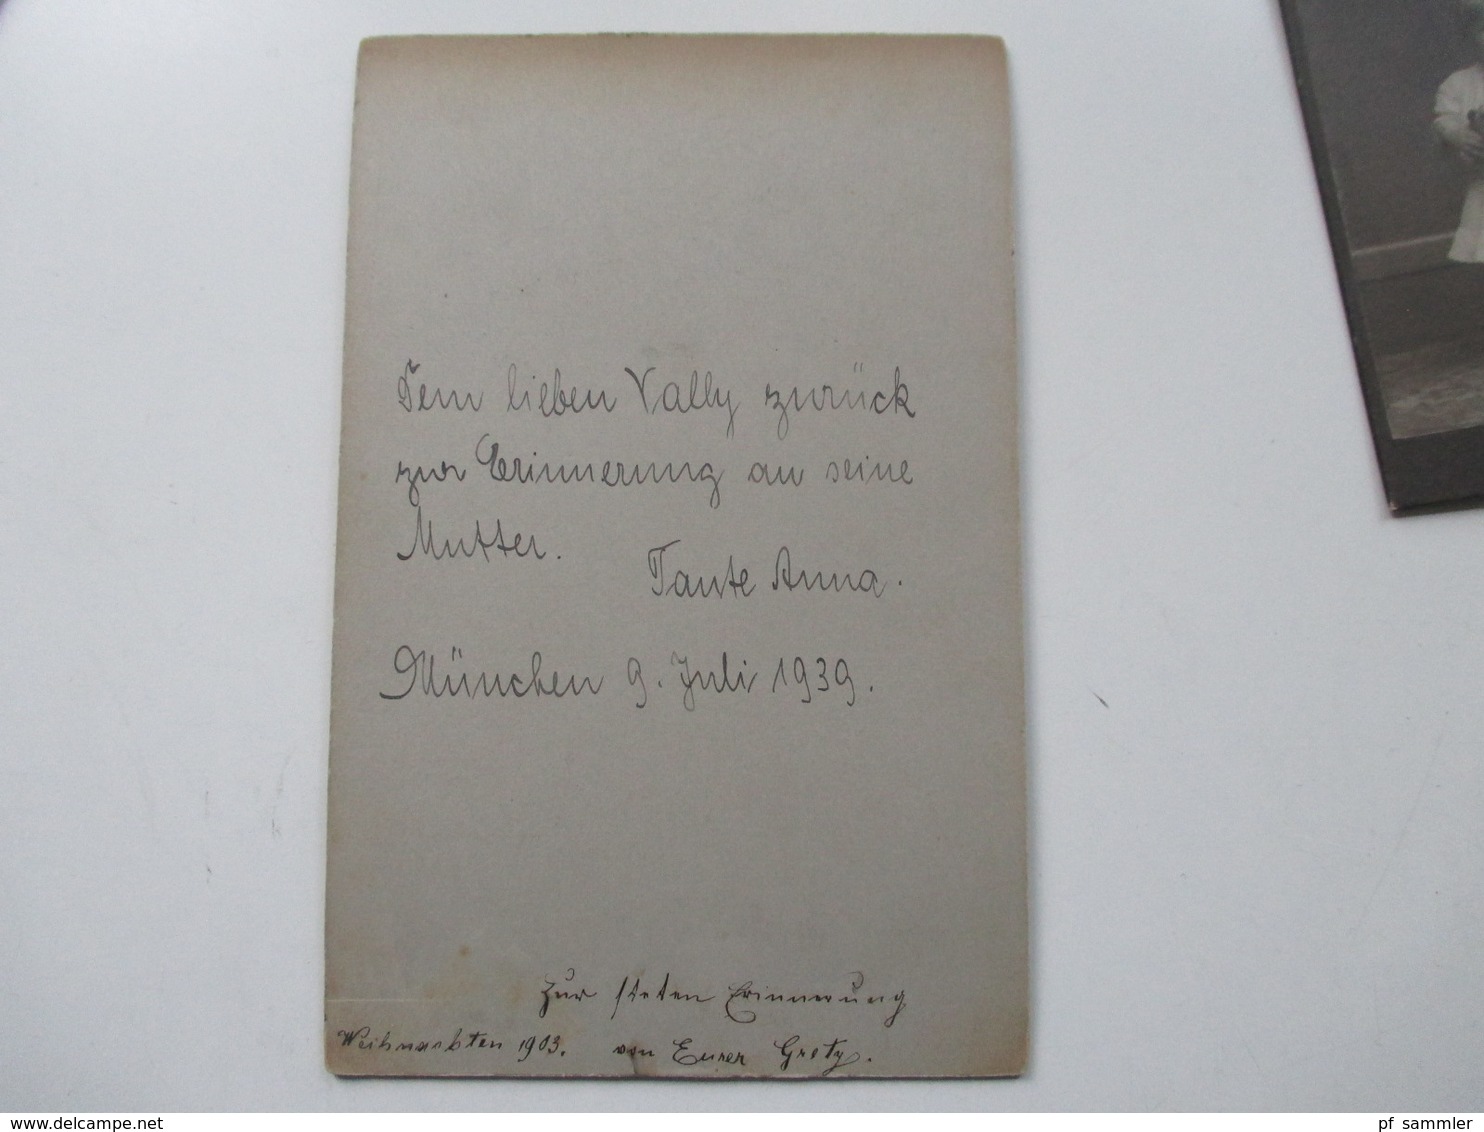 Dem lieben Vally zurück
zur Erinnerung an seine
Mutter.
Tante Anna.
München 9. Juli 1939.
Zur steten Erinnerung
Weihnachten 1903. von Eurer Grety.
www.delcampe.net
pf_sammler